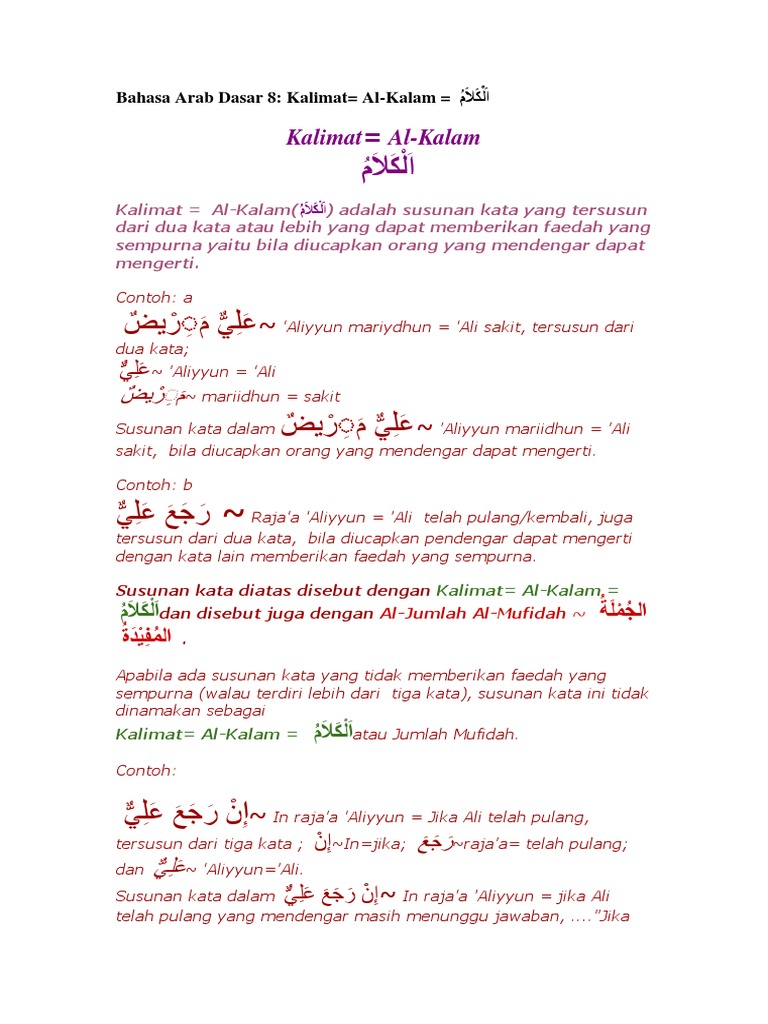 Bahasa Arab Dasar 8: Kalimat= Al-Kalam = اَلْكَلاَمُ
Kalimat= Al-Kalam
اَلْكَلاَمُ
Kalimat = Al-Kalam(اَلْكَلاَمُ) adalah susunan kata yang tersusun
dari dua kata atau lebih yang dapat memberikan faedah yang
sempurna yaitu bila diucapkan orang yang mendengar dapat
mengerti.
Contoh: a
عَلِيٌّ مَِرْيضٌ ~ 'Aliyyun mariydhun = 'Ali sakit, tersusun dari
dua kata;
عَلِيٌّ~ 'Aliyyun = 'Ali
مَِرْيضٌ~ mariidhun = sakit
Susunan kata dalam عَلِيٌّ مَِرْيضٌ ~ 'Aliyyun mariidhun = 'Ali
sakit, bila diucapkan orang yang mendengar dapat mengerti.
Contoh: b
رَجَعَ عَلِيٌّ ~ Raja'a 'Aliyyun = 'Ali telah pulang/kembali, juga
tersusun dari dua kata, bila diucapkan pendengar dapat mengerti
dengan kata lain memberikan faedah yang sempurna.
Susunan kata diatas disebut dengan Kalimat= Al-Kalam =
اَلْكَلاَمُdan disebut juga dengan Al-Jumlah Al-Mufidah ~ الجُمْلَةُ
المُفِيْدَةُ .
Apabila ada susunan kata yang tidak memberikan faedah yang
sempurna (walau terdiri lebih dari tiga kata), susunan kata ini tidak
dinamakan sebagai
Kalimat= Al-Kalam = اَلْكَلاَمُatau Jumlah Mufidah.
Contoh:
إِنْ رَجَعَ عَلِيٌّ~ In raja'a 'Aliyyun = Jika Ali telah pulang,
tersusun dari tiga kata ; إِنْ~In=jika; رَجَعَ~raja'a= telah pulang;
dan عَلِيٌّ~ 'Aliyyun='Ali.
Susunan kata dalam إِنْ رَجَعَ عَلِيٌّ~ In raja'a 'Aliyyun = jika Ali
telah pulang yang mendengar masih menunggu jawaban, ...."Jika